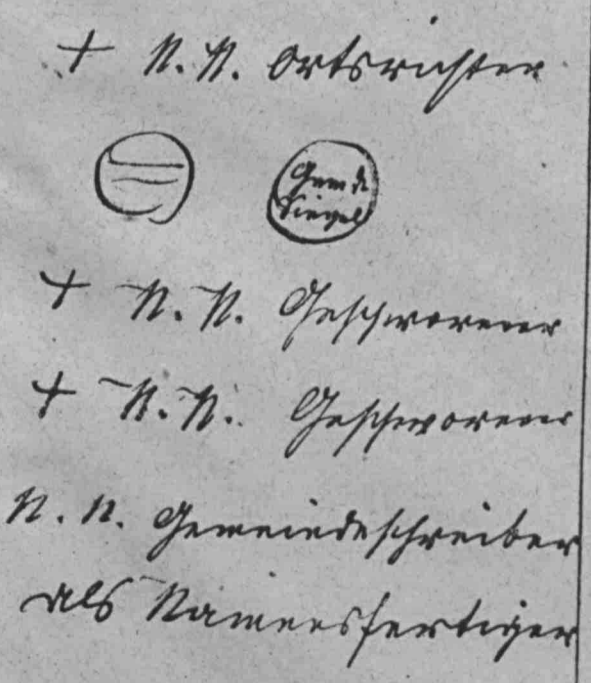 + N. N. Ortsrichter
Gemde
Siegel
+ N. N. Geschworener
+ N. N. Geschworener
N. N. Gemeindeschreiber
als Namensfertiger